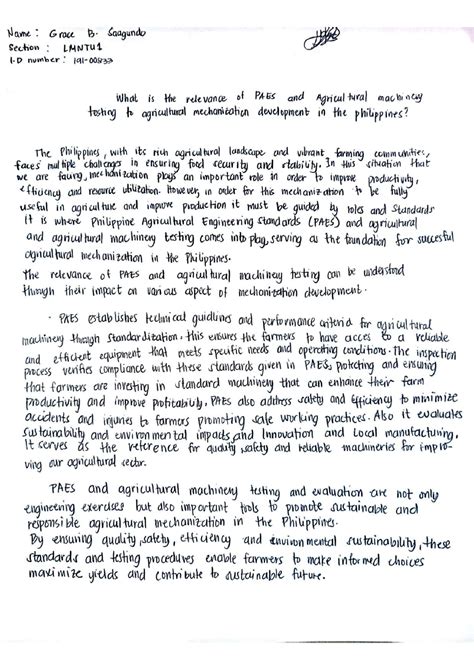 Name : Grace B. Saagundo
Section : LMNTU1
I.D number : 191-00833
What is the relevance of PAES and Agricultural machinery
testing to agricultural mechanization development in the philippines?
The Philippines, with its rich agricultural landscape and vibrant farming communities,
faces multiple challenges in ensuring food security and stability. In this situation that
we are facing, mechanization plays an important role in order to improve productivity,
efficiency and resource utilization. However, in order for this mechanization to be fully
useful in agriculture and improve production it must be guided by roles and standards
It is where Philippine Agricultural Engineering Standards (PAES) and agricultural
and agricultural machinery testing comes into play, serving as the foundation for succesful
agricultural mechanization in the Philippines.
The relevance of PAES and agricultural machinery testing can be understand
through their impact on various aspect of mechanization development.
· PAES establishes technical guidlines and performance criteria for agricultural
machinery through standardization. this ensures the farmers to have acces to a reliable
and efficient equipment that meets specific needs and operating conditions. The inspection
process verifies compliance with these standards given in PAES, protecting and ensuring
that farmers are investing in standard machinery that can enhance their farm
productivity and improve profitability. PAES also address safety and efficiency to minimize
accidents and injuries to farmers promoting safe working practices. Also it evaluates
sustainability and environmental impacts, and Innovation and Local manufacturing.
It serves as the reference for quality, safety and reliable machineries for impro-
ving our agricultural sector.
PAES and agricultural machinery testing and evaluation are not only
engineering exercises but also important tools to promote sustainable and
responsible agricultural mechanization in the Philippines.
By ensuring quality, safety, efficiency and environmental sustainability, these
standards and testing procedures enable farmers to make informed choices
maximize yields and contribute to sustainable future.